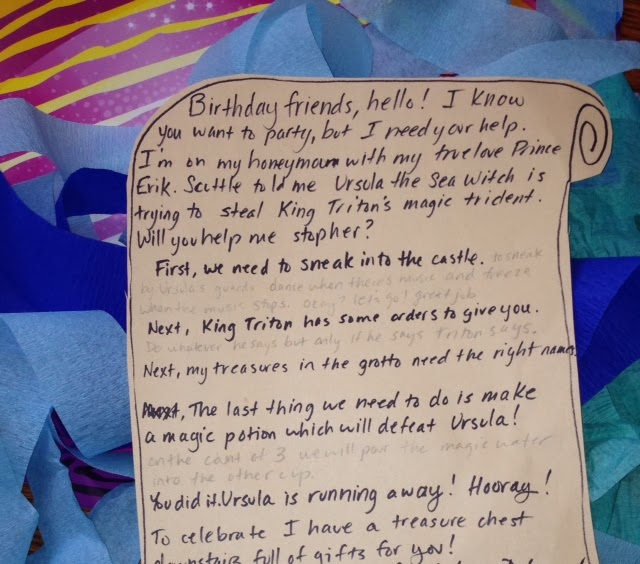 Birthday friends, hello! I know
you want to party, but I need your help.
I'm on my honeymoon with my true love Prince
Erik. Scuttle told me Ursula the Sea Witch is
trying to steal King Triton's magic trident.
Will you help me stop her?
First, we need to sneak into the castle. to sneak
by Ursula's guards dance when theirs music and freeze
when the music stops. Okay? let's go! great job
Next, King Triton has some orders to give you.
Do whatever he says but only if he says Triton says.
Next, my treasures in the grotto need the right names
The last thing we need to do is make
a magic potion which will defeat Ursula!
on the count of 3 we will pour the magic water
into the other cup.
You did it. Ursula is running away! Hooray!
To celebrate I have a treasure chest
downstairs full of gifts for you!